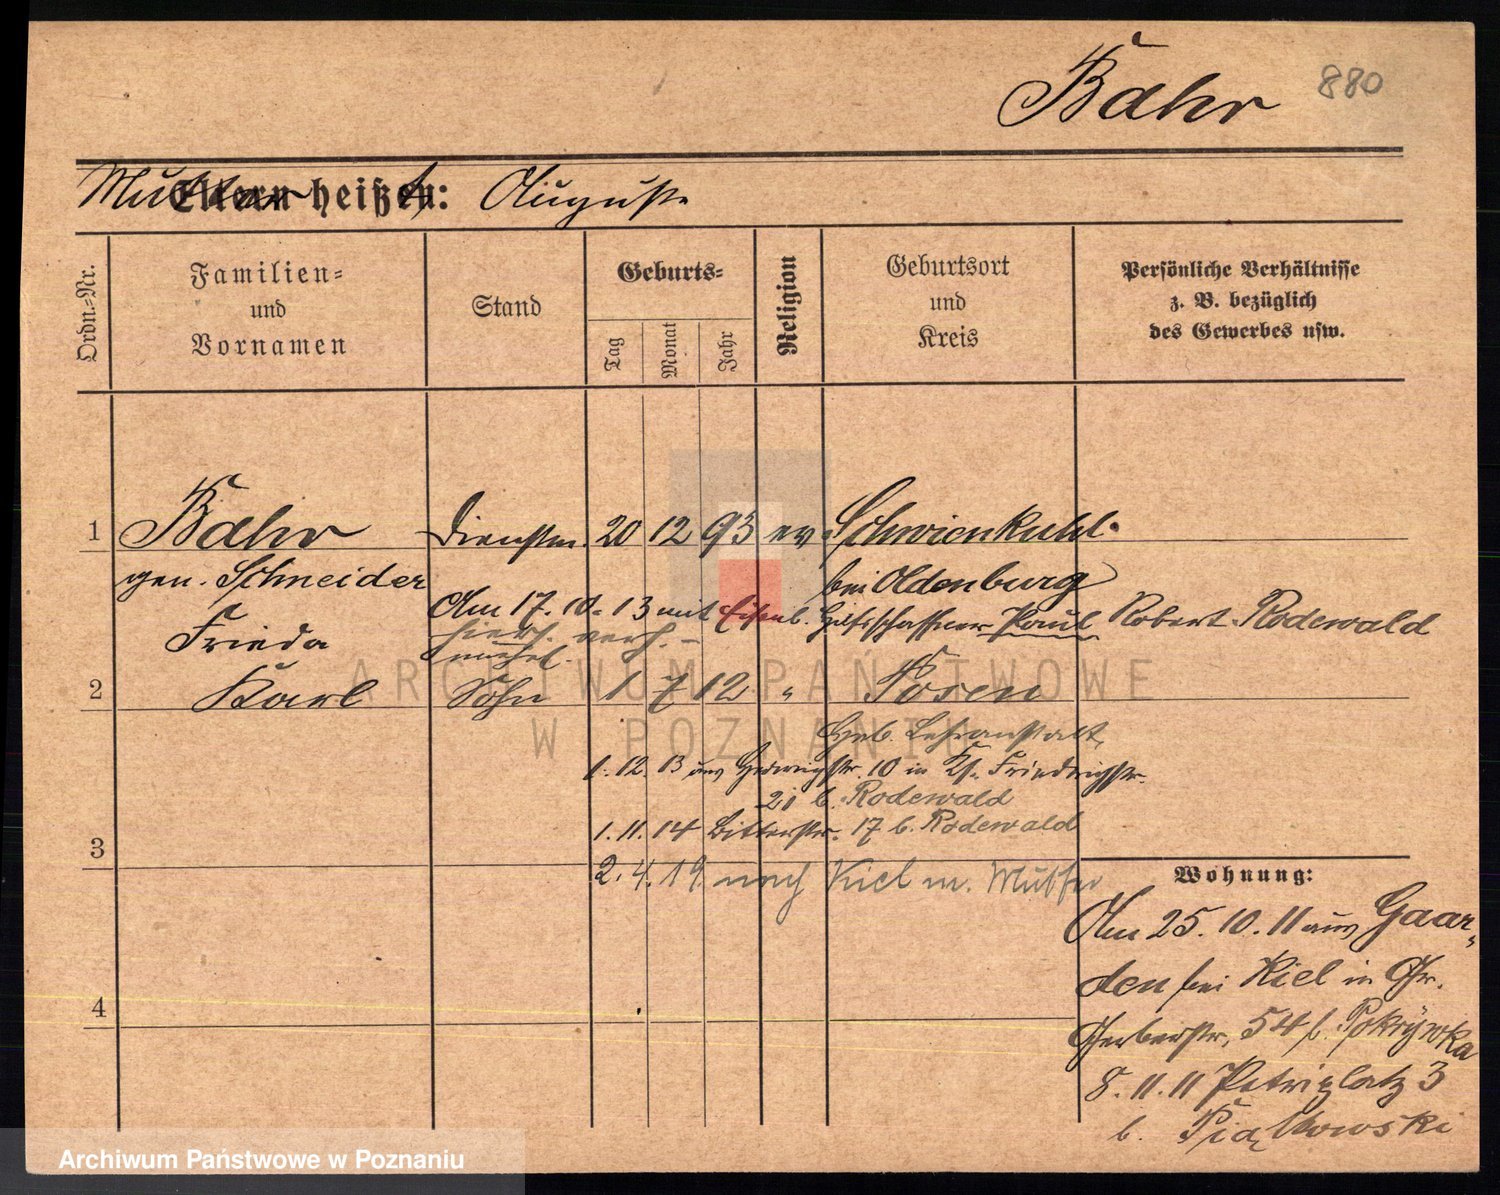 Bahr 880
Mutter
Eltern heißen: Auguste
Ordn.-Nr.
Familien-
und
Vornamen
Stand
Geburts-
Tag
Monat
Jahr
Religion
Geburtsort
und
Kreis
Persönliche Verhältnisse
z. B. bezüglich
des Gewerbes usw.
1 Bahr Dienstm. 20 12 93 ev. Schwienkuhl
gen. Schneider bei Oldenburg
Am 17. 10. 13 mit Eisenb. Hilfsschaffner Paul Robert Rodewald
Frieda hierf. verh.
2 Karl Sohn 1 7 12 " Posen
Geb. Lehranstalt,
1. 12. 13 aus Hedwigstr. 10 in Ks. Friedrichstr.
21 b. Rodewald
1. 11. 14 Bitterstr. 17 b. Rodewald
3
2. 4. 19. nach Kiel m. Mutter
Wohnung:
Am 25. 10. 11 aus Gaar-
den bei Kiel in Gr.
Gerberstr. 54 b. Pokrÿwka
4
8. 11. 11 Petriplatz 3
b. Piątkowski
ARCHIWUM PAŃSTWOWE
W POZNANIU
Archiwum Państwowe w Poznaniu